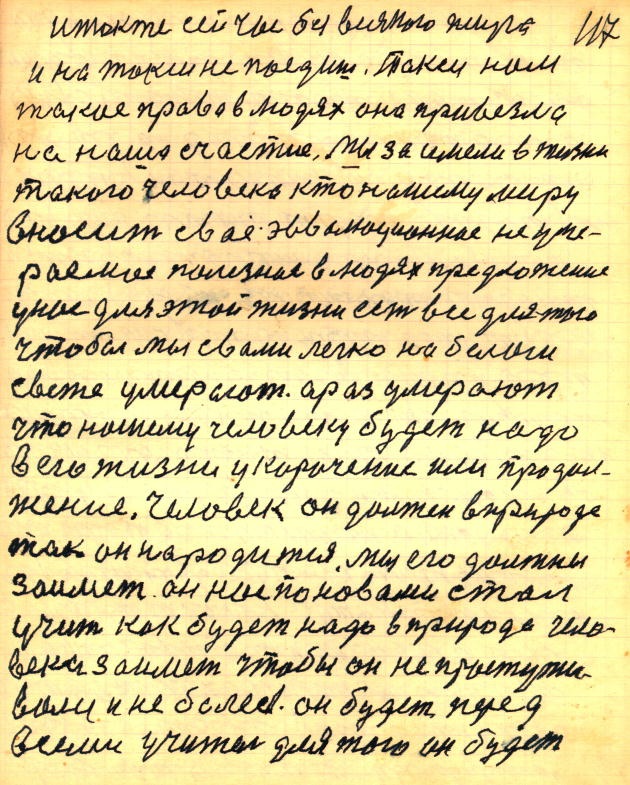 117
и також сей час без всякого жира
и на такси не поедиш. Такси нам
такое право в людях она привезла
на наша счастие, Мы за имели в жизни
такого человека кто нашему миру
вносит свае эвволюционное не уме-
раемое полезнае в людях предложение
у нас для этой жизни ест все для того
чтобы мы свами легко на белом
свете умерают. а раз умерают
что нашему человеку будет надо
в его жизни укорочение или продол-
жение. Человек он должен в природе
так он народится. мы его должны
заимет. он нас по новами стал
учит как будет надо в природе чело-
века заимет чтобы он не простужи-
вали и не болел. он будет перед
всеми учител для того он будет